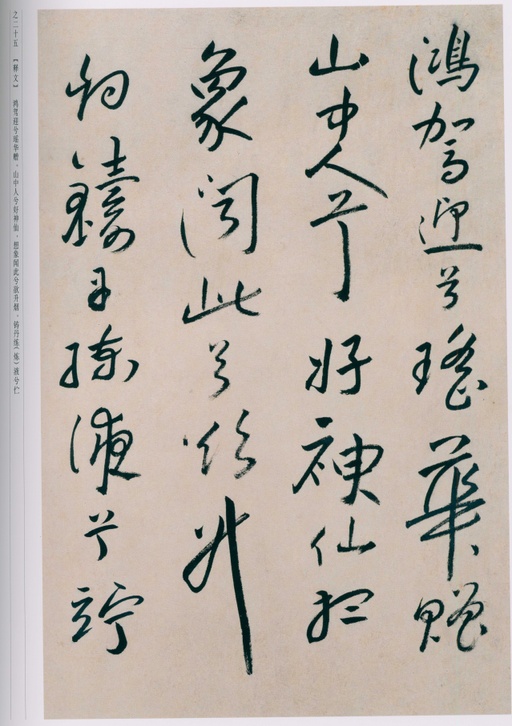 鴻駕迎兮瑤華贈
山中人兮好神仙想
象聞此兮欲升
烟鑄丹練液兮竚
之二十五 【释文】 鸿驾迎兮瑶华赠，山中人兮好神仙。想象闻此兮欲升烟，铸丹练（炼）液兮伫